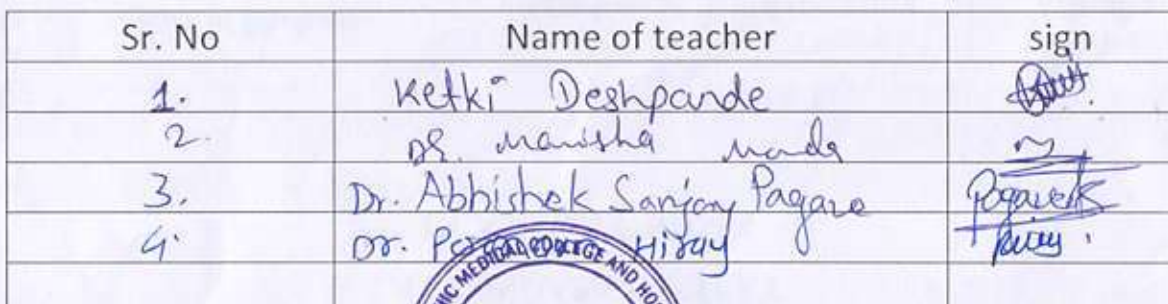 Sr. No Name of teacher sign
1. Ketki Deshpande
2. Dr. Manisha
3. Dr. Abhishek Sanjay Pagare
4. Dr. Hiray
MEDICAL COLLEGE AND